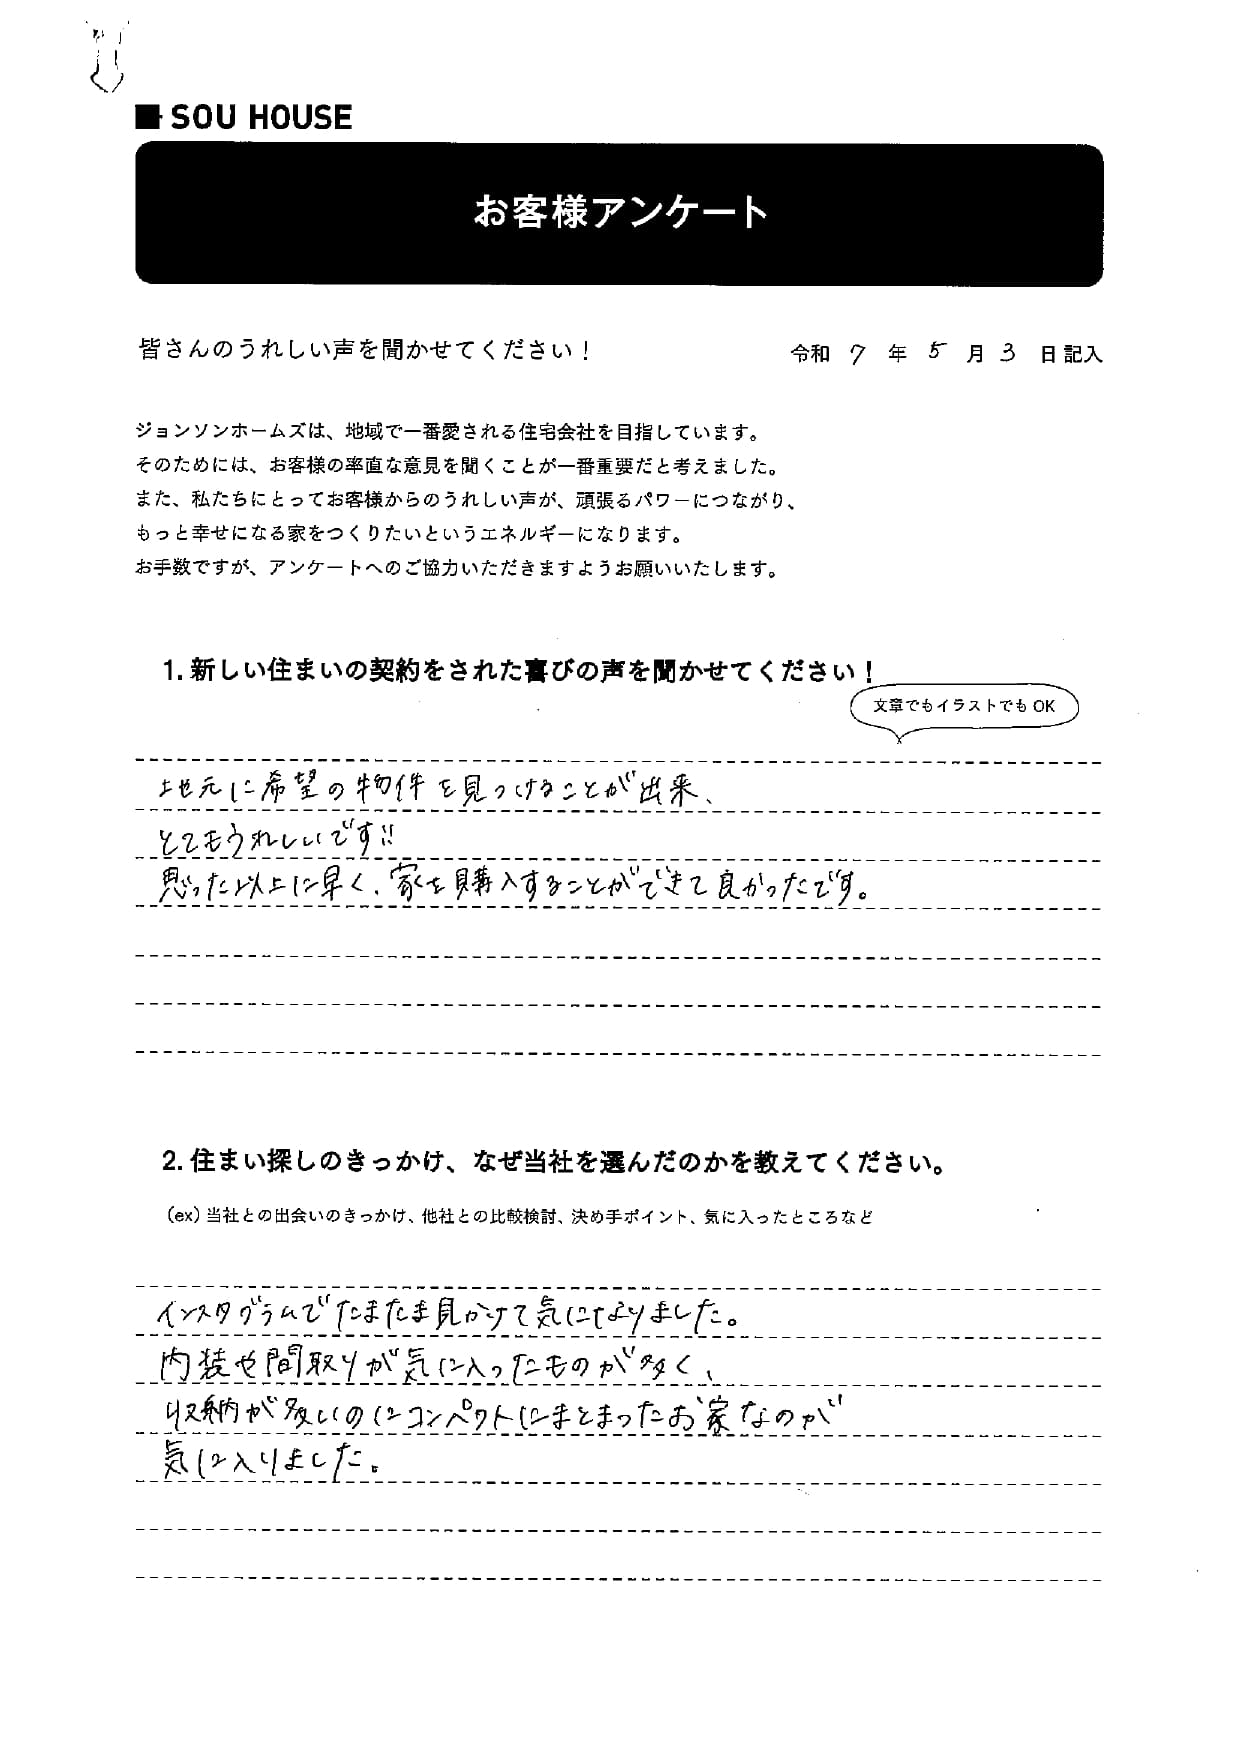 SOU HOUSE
お客様アンケート
皆さんのうれしい声を聞かせてください！
令和 7 年 5 月 3 日記入
ジョンソンホームズは、地域で一番愛される住宅会社を目指しています。
そのためには、お客様の率直な意見を聞くことが一番重要だと考えました。
また、私たちにとってお客様からのうれしい声が、頑張るパワーにつながり、
もっと幸せになる家をつくりたいというエネルギーになります。
お手数ですが、アンケートへのご協力いただきますようお願いいたします。
1. 新しい住まいの契約をされた喜びの声を聞かせてください！
文章でもイラストでも OK
地元に希望の物件を見つけることが出来、
とてもうれしいです!!
思った以上に早く、家を購入することができて良かったです。
2. 住まい探しのきっかけ、なぜ当社を選んだのかを教えてください。
（ex）当社との出会いのきっかけ、他社との比較検討、決め手ポイント、気に入ったところなど
インスタグラムでたまたま見かけて気になりました。
内装や間取りが気に入ったものが多く、
収納が多いのにコンパクトにまとまったお家なのが
気に入りました。